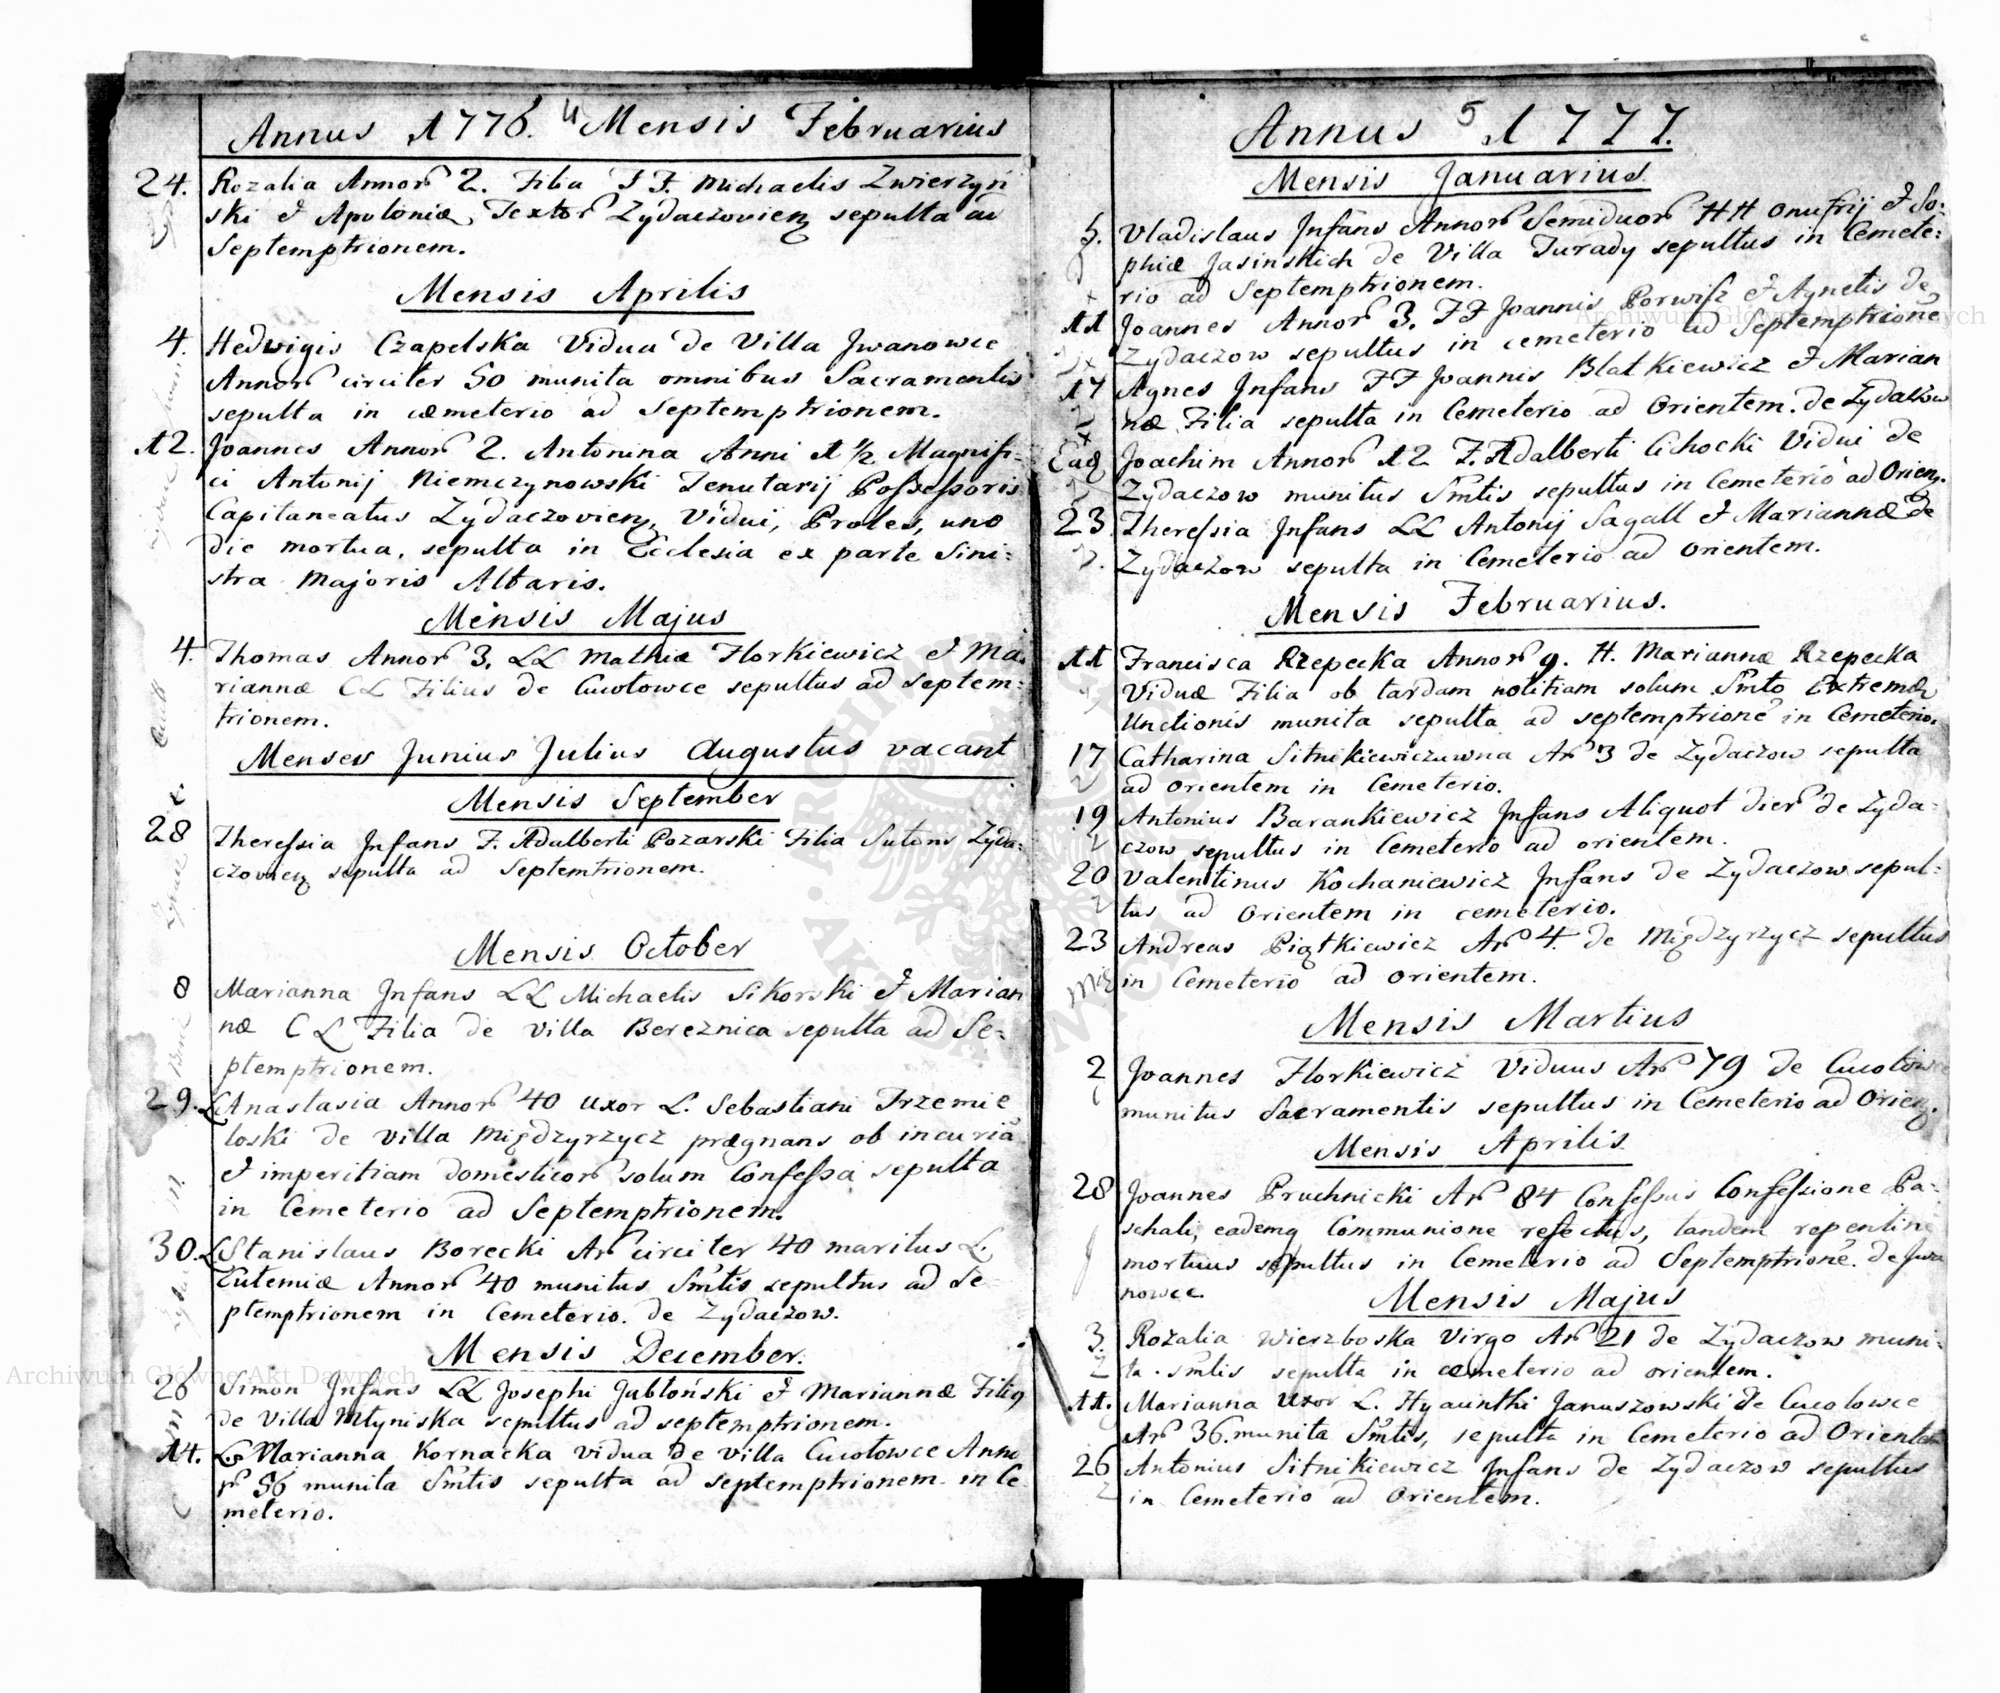 Annus 1776. 4 Mensis Februarius
24. Rozalia Annor 2. Filia FF. Michaelis Zwierzyń
ski et Apoloniæ Textor Zydaczovien sepulta ad
Septemptrionem.
Mensis Aprilis
4. Hedwigis Czapelska Vidua de Villa Jwanowce
Annor circiter 50 munita omnibus Sacramentis
sepulta in cœmeterio ad Septemptrionem.
12. Joannes Annor 2. Antonina Anni 1 1/2 Magnifi:
ci Antonij Niemczynowski Tenutarij Possessoris
Capitaneatus Zydaczovien, Vidui, Proles, uno
die mortua, sepulta in Ecclesia ex parte Sini:
stra Majoris Altaris.
Mensis Majus
4. Thomas Annor 3. LL Mathiæ Florkiewicz et Ma:
riannæ CL Filius de Cucołowce sepultus ad Septem:
trionem.
Menses Junius Julius Augustus vacant
Mensis September
28 Theressia Infans F. Adalberti Pozarski Filia Sutoris Zyda:
czovien sepulta ad Septemtrionem.
Mensis October
8 Marianna Infans LL Michaelis Sikorski et Marian
næ CL Filia de Villa Bereznica sepulta ad Se:
ptemptrionem.
29. L Anastasia Annor 40 uxor L. Sebastiani Trzemie
loski de Villa Międzyrzycz prægnans ob incuriā
et imperitiam domesticor solum Confessa sepulta
in Cemeterio ad Septemptrionem.
30. L Stanislaus Borecki An circiter 40 maritus L.
Eutemiæ Annor 40 munitus Smtis sepultus ad Se
ptemptrionem in Cemeterio. de Zydaczow.
Mensis December.
26 Simon Infans LL Josephi Jabłoński et Mariannæ Filiq
de Villa Młyniska sepultus ad septemptrionem.
14. L Marianna Kornacka vidua de Villa Cucołowce Anno
r 56 munita Smtis sepulta ad septemptrionem in Ce
meterio.
Annus 5 1777.
Mensis Januarius.
5. Vladislaus Infans Annor Semiduor HH Onufrij et So:
phiæ Jasinskich de Villa Turady sepultus in Cemete:
rio ad Septemptrionem.
11 Joannes Annor 3. FF Joannis Porwisz et Agnetis de
Zydaczow sepultus in cemeterio ad Septemptrionē
17 Agnes Infans FF Joannis Blatkiewicz et Marian
næ Filia sepulta in Cemeterio ad Orientem. de Zydaczow
Ead Joachim Annor 12 F. Adalberti Cichocki Vidui de
Zydaczow munitus Smtis sepultus in Cemeterio ad Orien.
23 Theressia Infans LL Antonij Sagall et Mariannæ de
Zydaczow sepulta in Cemeterio ad Orientem.
Mensis Februarius.
11 Francisca Rzepecka Annor 9. H. Mariannæ Rzepecka
Viduæ Filia ob tardam notitiam solum Smto Extremæ
Unctionis munita sepulta ad septemptrionē in Cemeterio.
17 Catharina Sitnikiewiczuwna An 3 de Zydaczow sepulta
ad Orientem in Cemeterio.
19 Antonius Barankiewicz Infans Aliquot dier de Zyda:
czow sepultus in Cemeterio ad orientem.
20 Valentinus Kochaniewicz Infans de Zydaczow sepul:
tus ad Orientem in cemeterio.
23 Andreas Piątkiewicz An 4. de Międzyrzycz sepultus
Mię in Cemeterio ad Orientem.
Mensis Martius
2 Joannes Florkiewicz Viduus An 79 de Cucołowce
munitus Sacramentis sepultus in Cemeterio ad Orien.
Mensis Aprilis
28 Joannes Pruchnicki An 84 Confessus Confessione Pa:
schali, eademq Communione refectus, tandem repentine
mortuus sepultus in Cemeterio ad Septemptrionē. de Jwa
nowce.
Mensis Majus
3. Rozalia Wierzboska Virgo An 21 de Zydaczow muni:
ta Smtis sepulta in cœmeterio ad orientem.
11. Marianna Uxor L. Hyacinthi Januszowski de Cucołowce
An 36. munita Smtis, sepulta in Cemeterio ad Orientem
26 Antonius Sitnikiewicz Infans de Zydaczow sepultus
in Cemeterio ad Orientem.
Archiwum Główne Akt Dawnych
Archiwum Główne Akt Dawnych